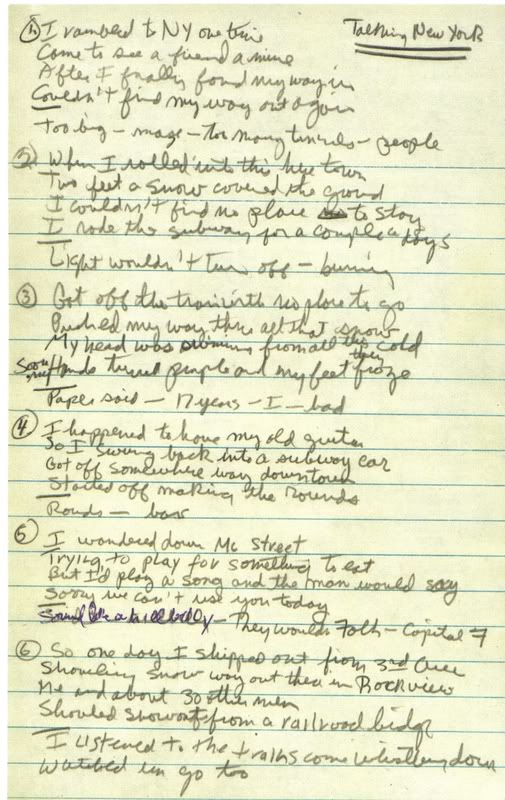 Talking New York
① I rambled to NY one time
Come to see a friend a mine
After I finally found my way in
Couldn't find my way out again
Too big – maze – too many tunnels – people
② When I rolled into this here town
Two feet a snow covered the ground
I couldn't find no place to stay
I rode the subway for a couple a days
Light wouldn't turn off – burning
③ Got off the train with no place to go
Pushed my way thru all that snow
My head was swimmin from all the cold
people and my feet froze
Paper said – 17 years – I – bad
④ I happened to have my old guitar
So I swung back into a subway car
Got off somewhere way downtown
Started off making the rounds
Rounds – bars
⑤ I wandered down Mc Street
Trying to play for something to eat
But I'd play a song and the man would say
Sorry we can't use you today
Sound like a hillbilly – They wouldn't Folk – Capital F
⑥ So one day I shipped out from 3rd Ave
Shoveling snow way out there in Rockview
Me and about 30 other men
Shoveled snow off from a railroad bridge
I listened to the trains come whistling down
Watched em go too